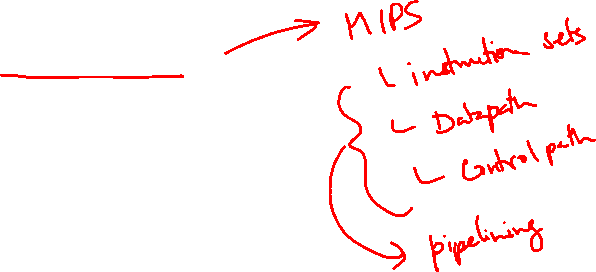 MIPS
instruction sets
Datapath
Control path
pipelining